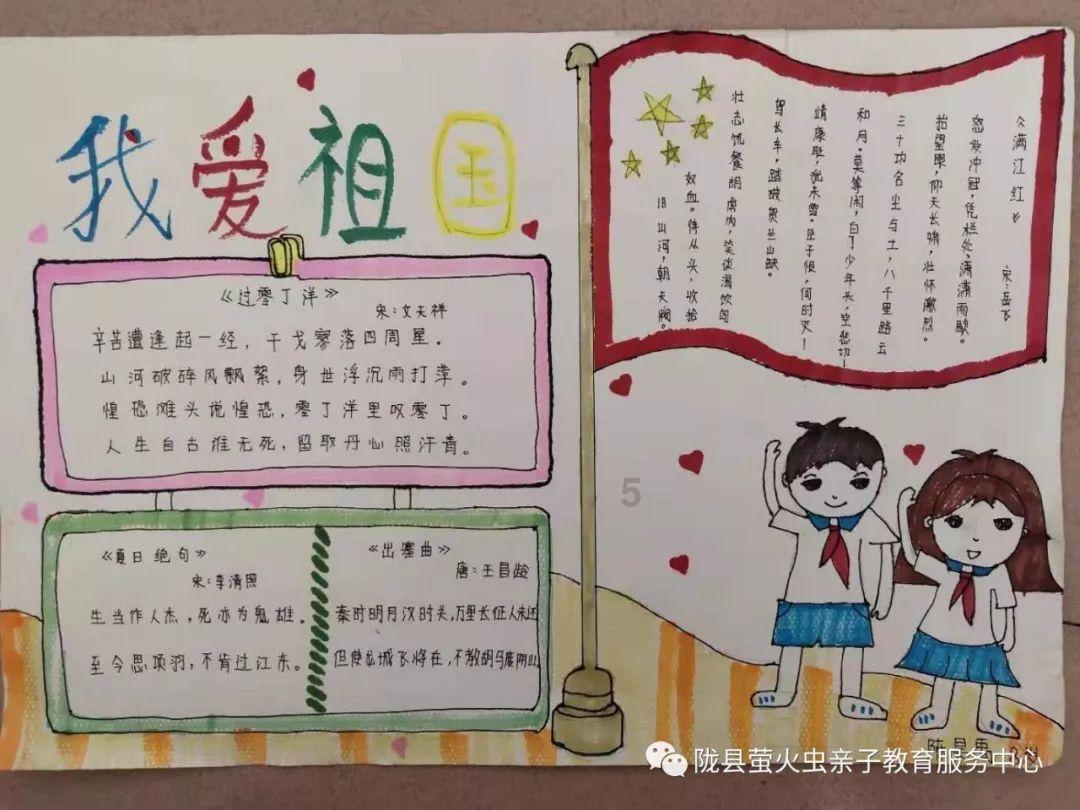 我爱祖国
《过零丁洋》
宋:文天祥
辛苦遭逢起一经,干戈寥落四周星。
山河破碎风飘絮,身世浮沉雨打萍。
惶恐滩头说惶恐,零丁洋里叹零丁。
人生自古谁无死,留取丹心照汗青。
《夏日绝句》
宋:李清照
生当作人杰,死亦为鬼雄。
至今思项羽,不肯过江东。
《出塞曲》
唐:王昌龄
秦时明月汉时关,万里长征人未还
但使龙城飞将在,不教胡马度阴山
《满江红》
宋:岳飞
怒发冲冠,凭栏处,潇潇雨歇。
抬望眼,仰天长啸,壮怀激烈。
三十功名尘与土,八千里路云
和月。莫等闲,白了少年头,空悲切!
靖康耻,犹未雪。臣子恨,何时灭!
驾长车,踏破贺兰山缺。
壮志饥餐胡虏肉,笑谈渴饮匈
奴血。待从头,收拾
旧山河,朝天阙。
5
陇县
陇县萤火虫亲子教育服务中心